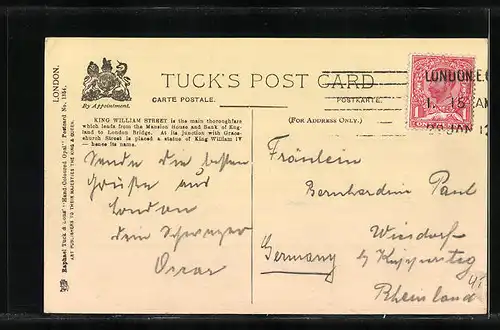 TUCK'S POST CARD
By Appointment.
CARTE POSTALE.
POSTKARTE.
(FOR ADDRESS ONLY.)
LONDON.
Raphael Tuck & Sons' "Hand-Coloured Opal" Postcard No. 1154.
ART PUBLISHERS TO THEIR MAJESTIES THE KING & QUEEN.
KING WILLIAM STREET is the main thoroughfare
which leads from the Mansion House and Bank of Eng-
land to London Bridge. At its junction with Grace-
church Street is placed a statue of King William IV
— hence its name.
LONDON.E.C
1. 15 AM
JAN 12
1
Sende die besten
Grüße aus
London
dein Schwager
Oscar
Fräulein
Bernhardine Paul
Wiesdorf
b/ Küppersteg
Rheinland
Germany